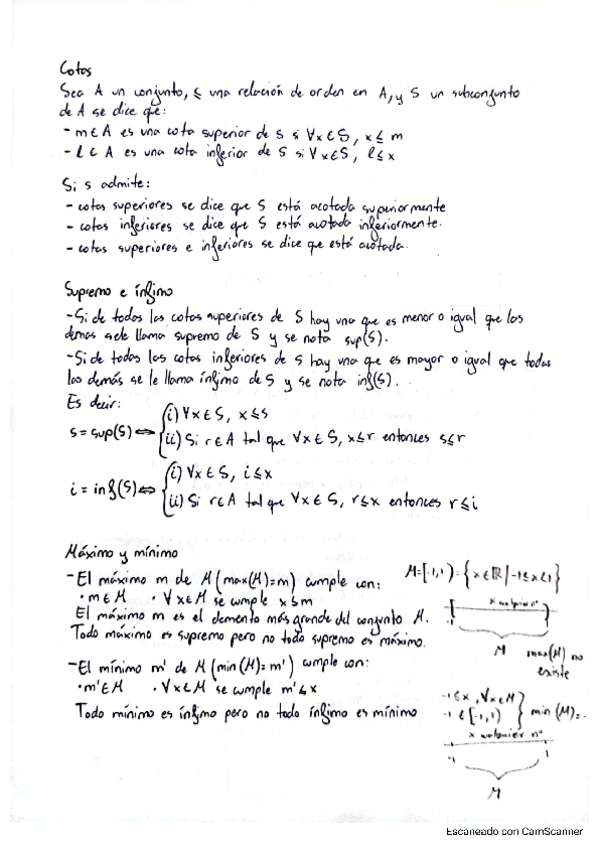 Cotas
Sea A un conjunto, ≤ una relación de orden en A, y S un subconjunto
de A se dice que:
- m∈A es una cota superior de S si ∀x∈S, x≤m
- l∈A es una cota inferior de S si ∀x∈S, l≤x
Si s admite:
- cotas superiores se dice que S está acotada superiormente
- cotas inferiores se dice que S está acotada inferiormente.
- cotas superiores e inferiores se dice que está acotada.
Supremo e ínfimo
-Si de todas las cotas superiores de S hay una que es menor o igual que las
demas se le llama supremo de S y se nota sup(S).
-Si de todas las cotas inferiores de S hay una que es mayor o igual que todas
las demás se le llama ínfimo de S y se nota inf(S).
Es decir:
s = sup(S) ⇔ { i) ∀x∈S, x≤s
ii) Si r∈A tal que ∀x∈S, x≤r entonces s≤r
i = inf(S) ⇔ { i) ∀x∈S, i≤x
ii) Si r∈A tal que ∀x∈S, r≤x entonces r≤i
Máximo y mínimo
-El máximo m de M (max(M)=m) cumple con:
· m∈M · ∀x∈M se cumple x≤m
El máximo m es el elemento más grande del conjunto M.
Todo máximo es supremo pero no todo supremo es máximo.
M=[-1,1)={x∈ℝ|-1≤x<1}
x cualquier nº
-1
M
max(M) no
existe
-El mínimo m' de M (min(M)=m') cumple con:
· m'∈M · ∀x∈M se cumple m'≤x
Todo mínimo es ínfimo pero no todo ínfimo es mínimo
-1≤x, ∀x∈M
-1 ∈ [-1,1) } min(M)=
x cualquier nº
-1 1
M
Escaneado con CamScanner